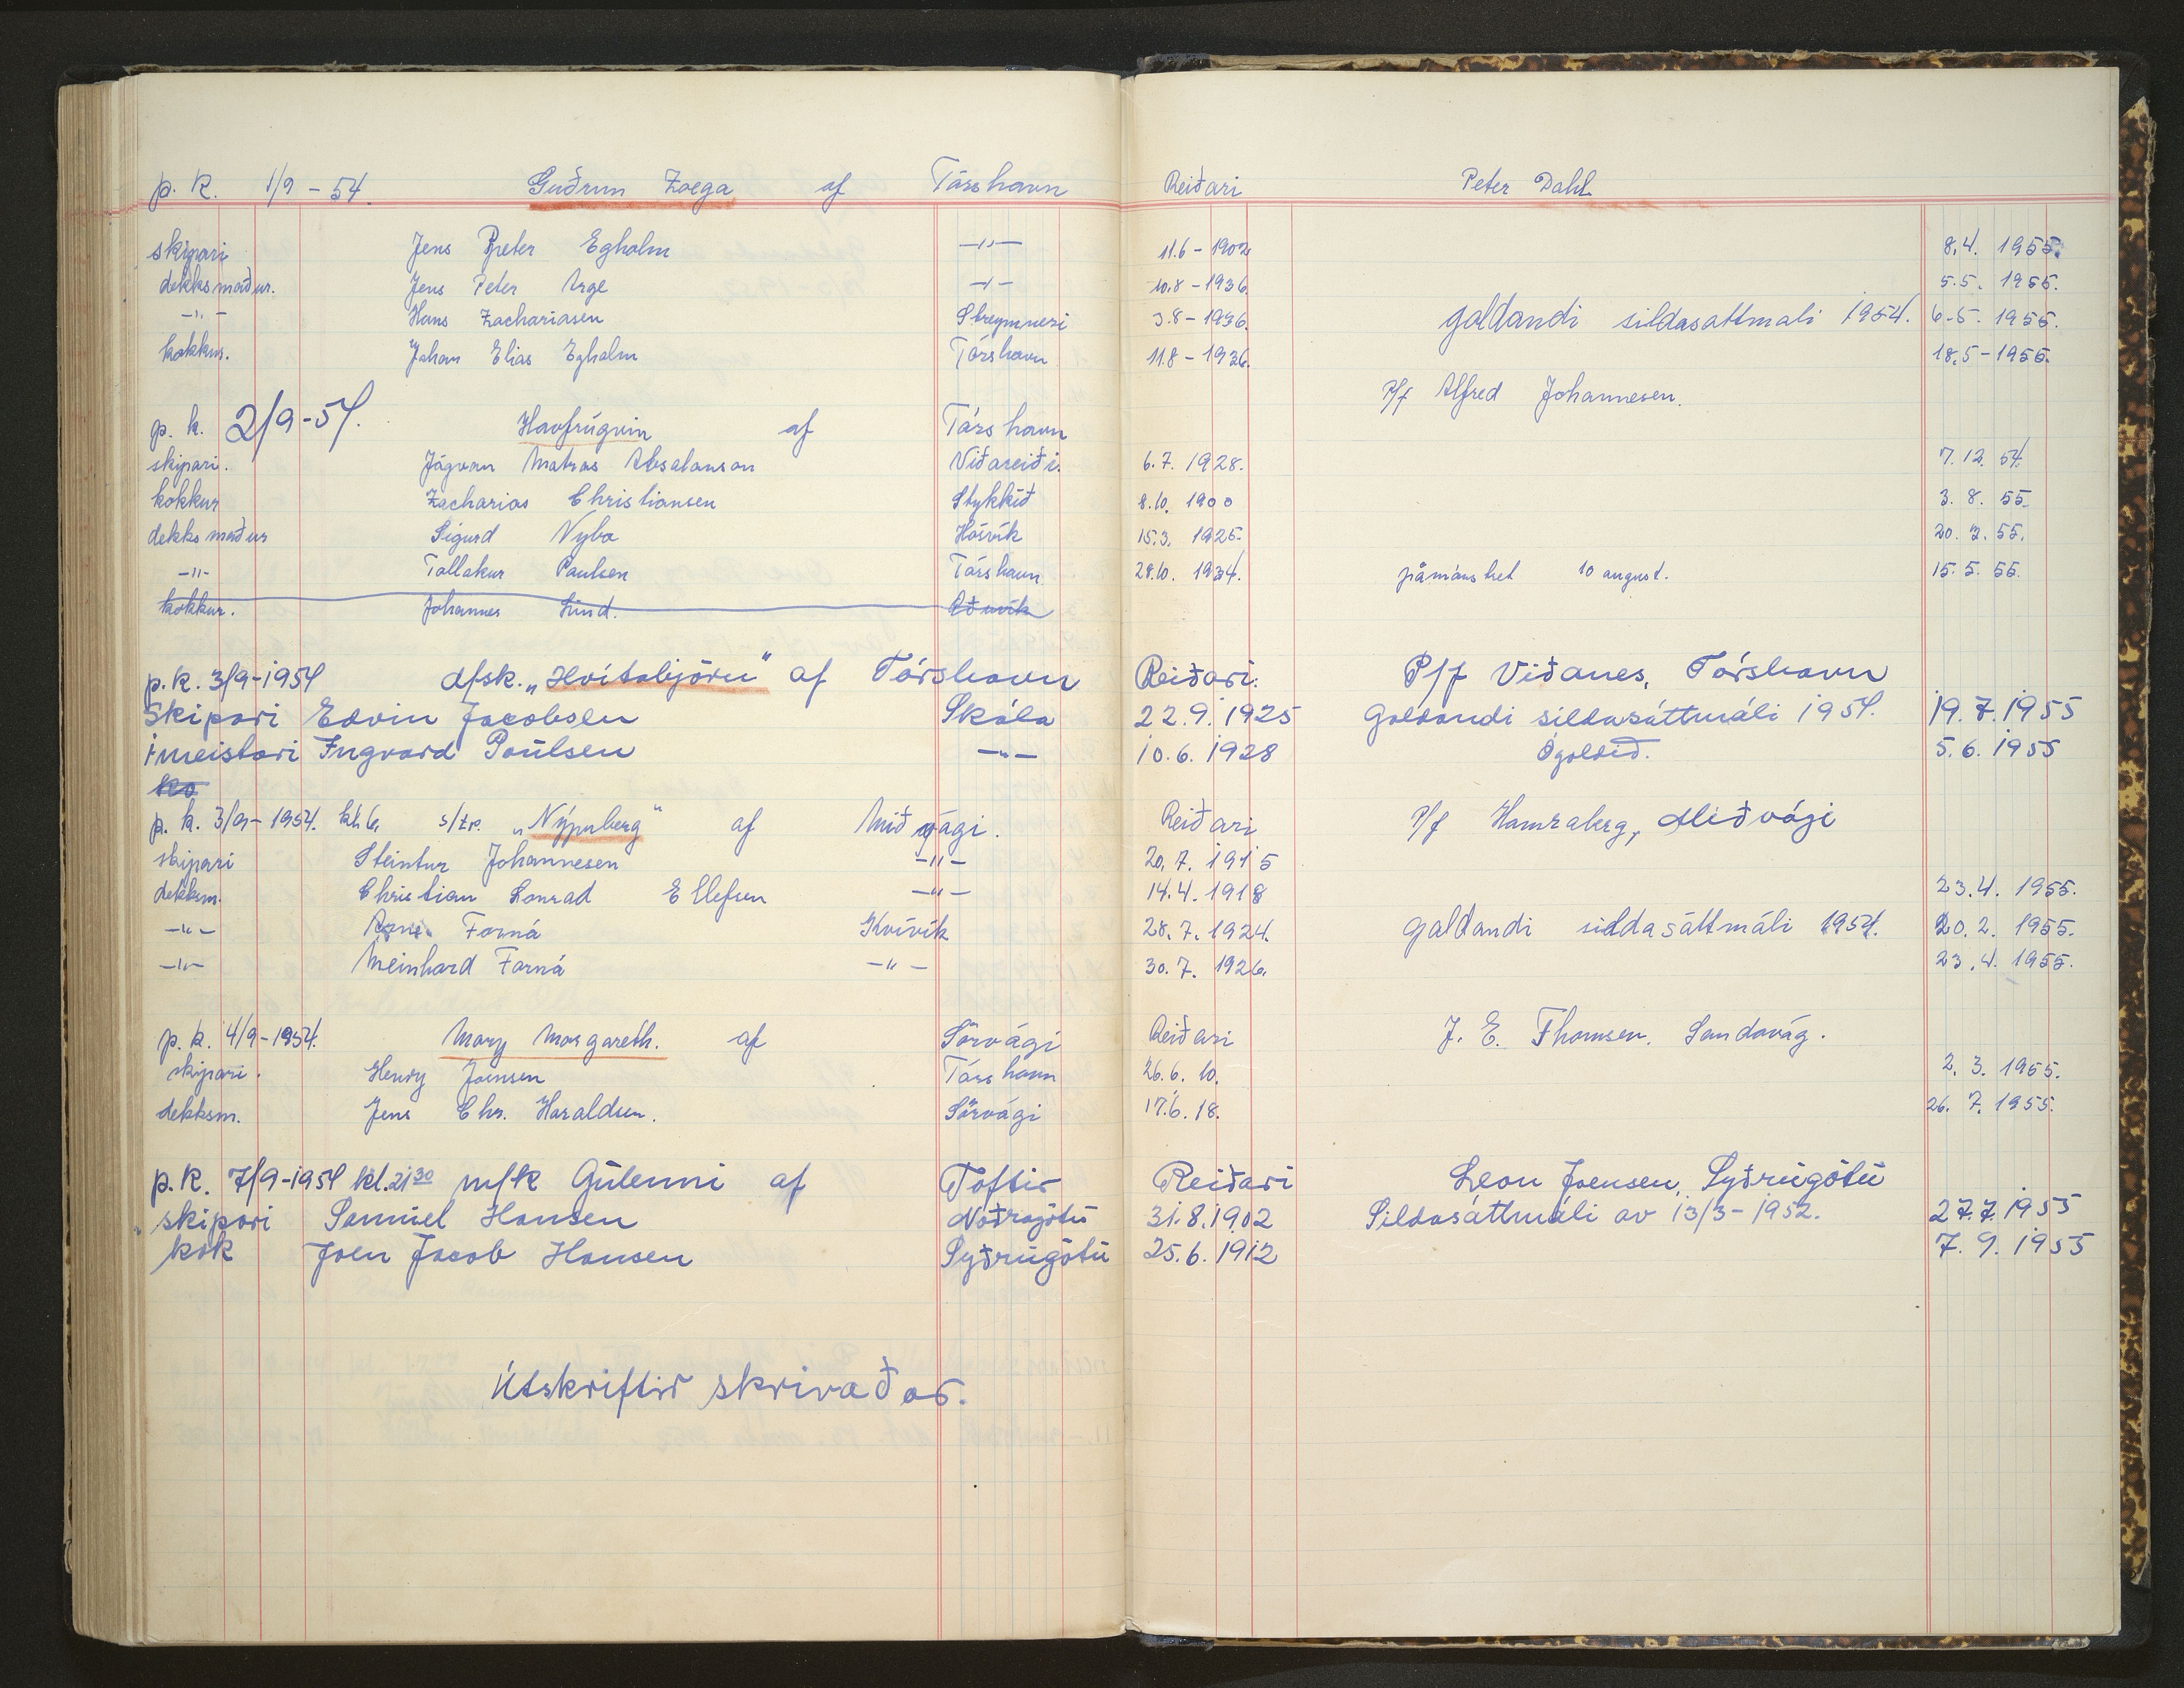 p. k. 1/9 - 54. Guðrun Zoega af Tórshavn Reiðari Peter Dahl
skipari Jens Peter Egholm -"- 11.6 - 1902 8.4. 1955.
dekksmaður. Jens Peter Arge -"- 10.8 - 1936. 5.5. 1955.
-"- Hans Zachariasen Streymnesi 3.8 - 1936. galdandi sildasattmali 1954. 6-5. 1955.
kokkur. Johan Elias Egholm Tórshavn 11.8 - 1936. 18.5 - 1955.
P/f Alfred Johannesen.
p. k. 2/9-54. Havfrúgvin af Tórshavn
skipari. Jógvan Matras Absalonson Viðareiði. 6.7. 1928. 7.12. 54.
kokkur Zacharias Christiansen Stykkið 8.10. 1900 3. 8. 55.
dekksmaður Sigurd Nybo Hósvík 15.3. 1925. 20. 7. 55.
-"- Tollakur Poulsen Tórshavn 28.10. 1934. pámánshet 10 august. 15. 5. 55.
kokkur. Johannes Lund.
p. k. 3/9-1954 dfsk. „Hvítabjörn" af Tórshavn Reiðari: P/f Viðanes, Tórshavn
Skipari Edvin Jacobsen Skála 22.9. 1925 Galdandi sildasáttmáli 1954. 19.7.1955
1meistari Ingvard Poulsen -"- 10.6. 1928 Ógoldið. 5.6.1955
ko
p. k. 3/9 - 1954. kl. 6 s/tr. „Nýpuberg" af Miðvági. Reiðari P/f Hamraberg, Miðvági
skipari Steintur Johannesen -"- 20. 7. 1915
dekksm. Christian Konrad Ellefsen -"- 14.4. 1918 23.4. 1955.
-"- Arne Forná Kvívík 28.7. 1924. galdandi sildasáttmáli 1954. 20. 2. 1955.
-"- Meinhard Forná -"- 30. 7. 1926. 23. 4. 1955.
p. k. 4/9 - 1954. Mary Margareth. af Sörvági Reiðari J. E. Thomsen. Sandavág.
skipari. Henry Joensen Tórshavn 26. 6. 10. 2. 3. 1955.
dekksm. Jens Chr. Haraldsen. Sörvági 17.6. 18. 26. 7. 1955.
p. k. 7/9-1954 kl. 21 30 m/k Gulenni af Toftir Reiðari Leon Joensen, Syðrugötu
skipari Samuel Hansen Norðragötu 31.8.1902 Sildasáttmáli av 13/3 - 1952. 27.7.1955
kok Joen Jacob Hansen Syðrugötu 25.6. 1912 7. 9. 1955
Útskriftir skrivaðar.